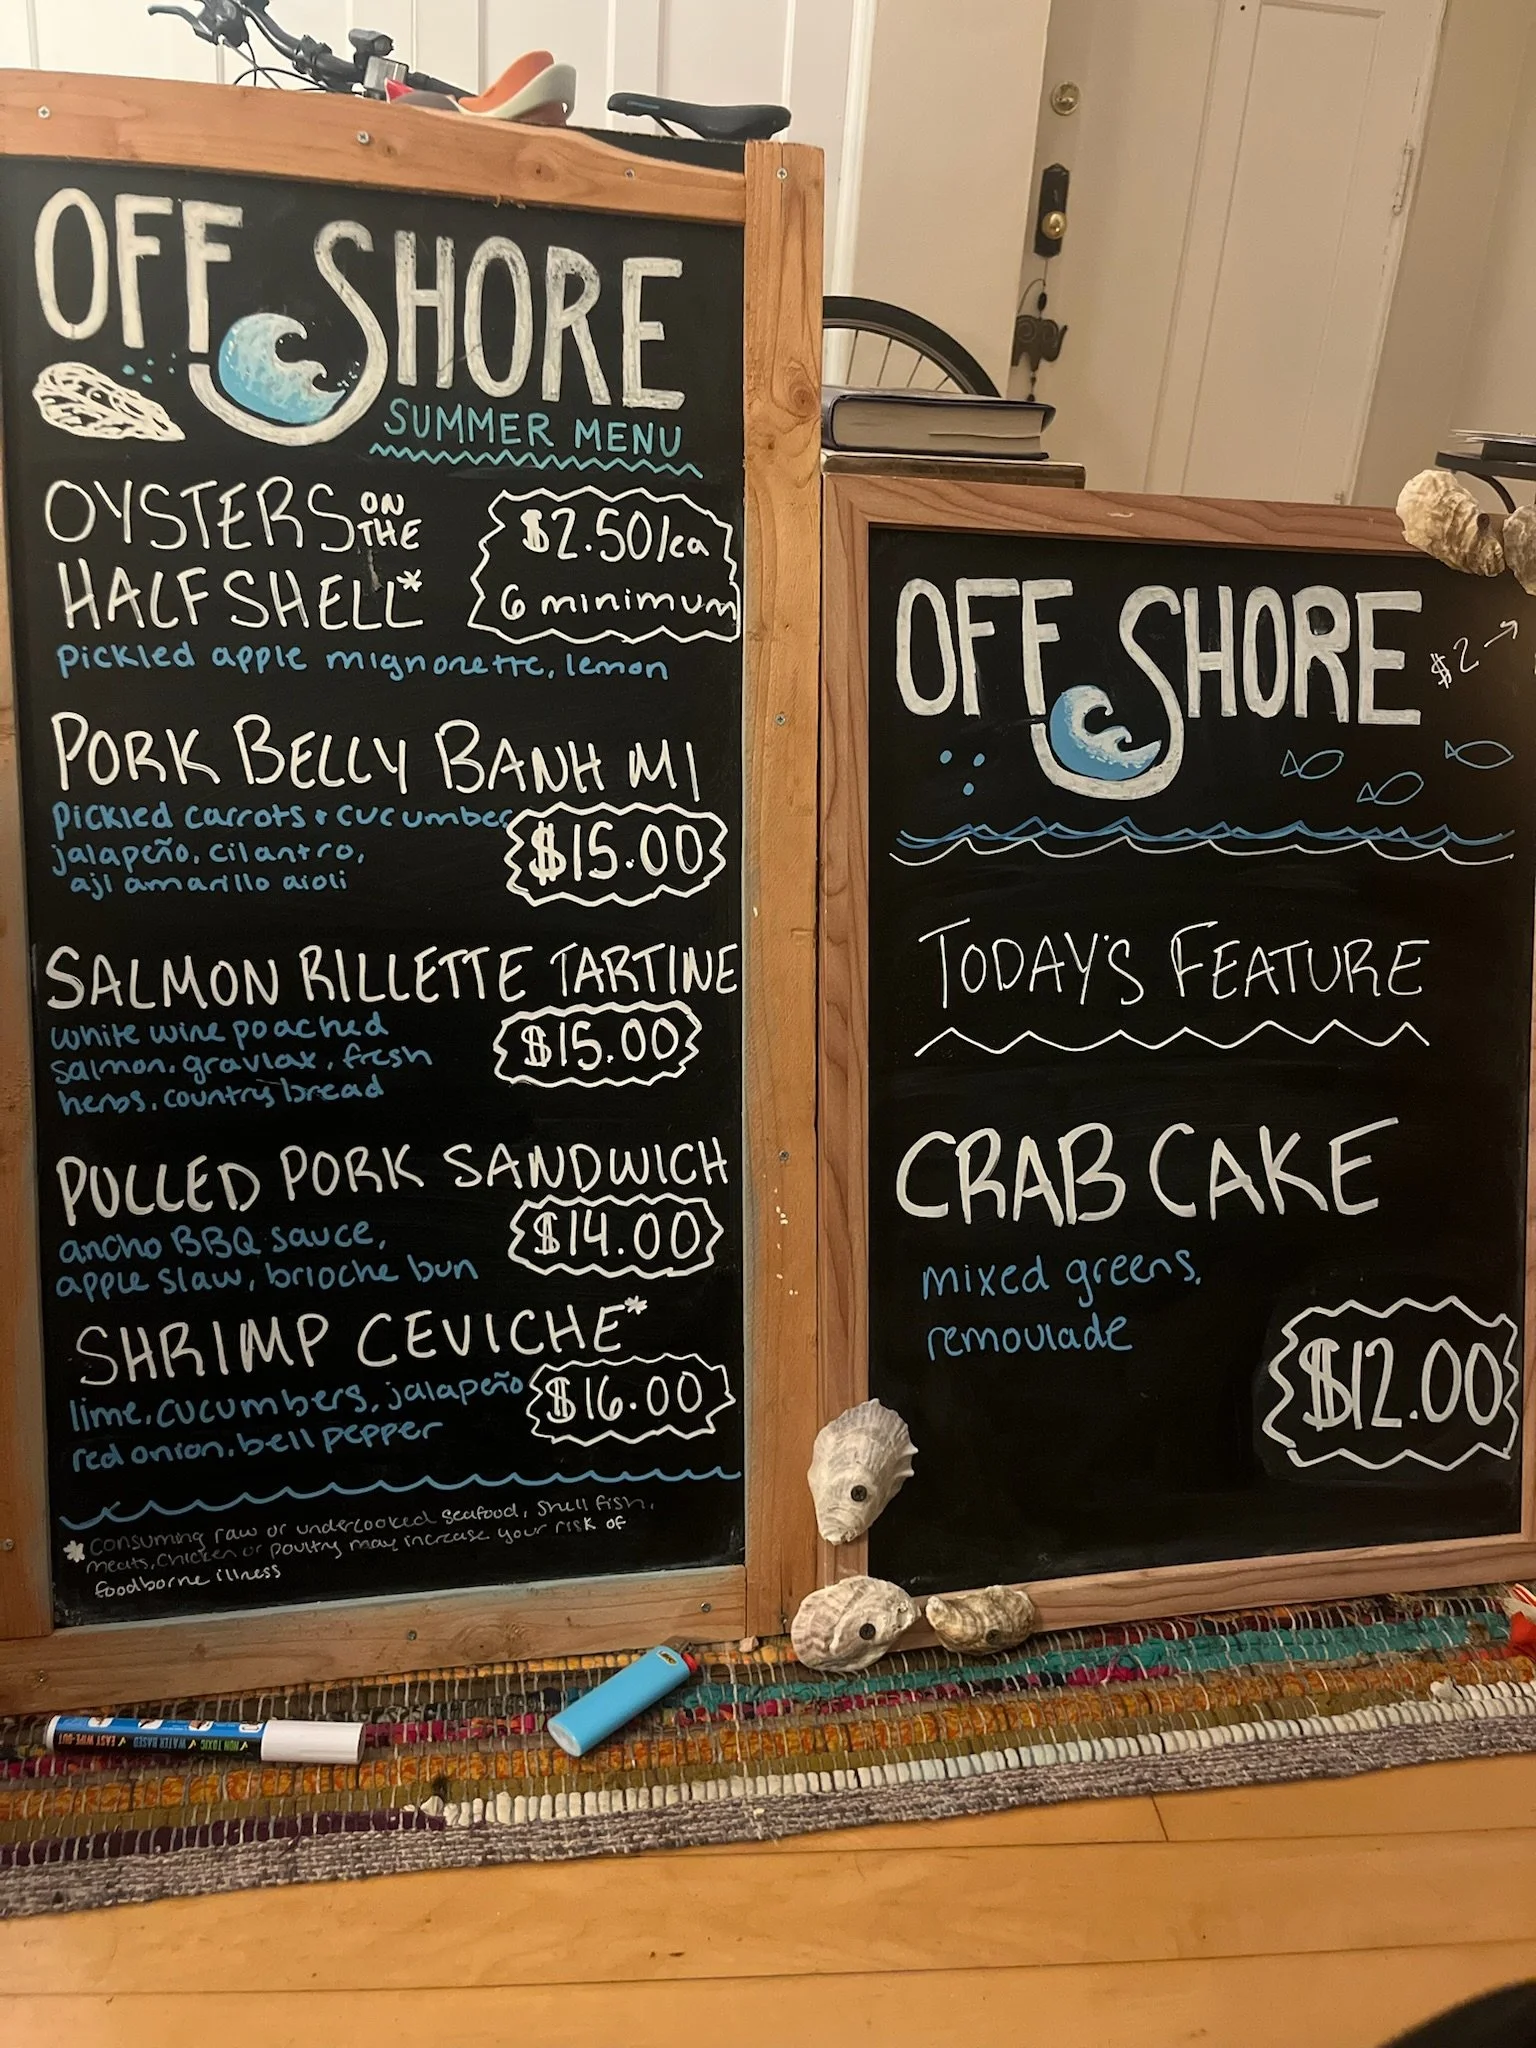 OFF SHORE
SUMMER MENU
OYSTERS ON THE
HALF SHELL*
$2.50/ea
6 minimum
pickled apple mignonette, lemon
PORK BELLY BANH MI
pickled carrots + cucumber,
jalapeño, cilantro,
aji amarillo aioli
$15.00
SALMON RILLETTE TARTINE
white wine poached
salmon, gravlax, fresh
herbs, country bread
$15.00
PULLED PORK SANDWICH
ancho BBQ sauce,
apple slaw, brioche bun
$14.00
SHRIMP CEVICHE*
lime, cucumbers, jalapeño
red onion, bell pepper
$16.00
* consuming raw or undercooked seafood, shell fish,
meats, chicken or poultry may increase your risk of
foodborne illness
OFF SHORE
$2 →
TODAY'S FEATURE
CRAB CAKE
mixed greens,
remoulade
$12.00
BIC
✓ EASY WIPE-OUT ✓ WATER BASED ✓ NON TOXIC